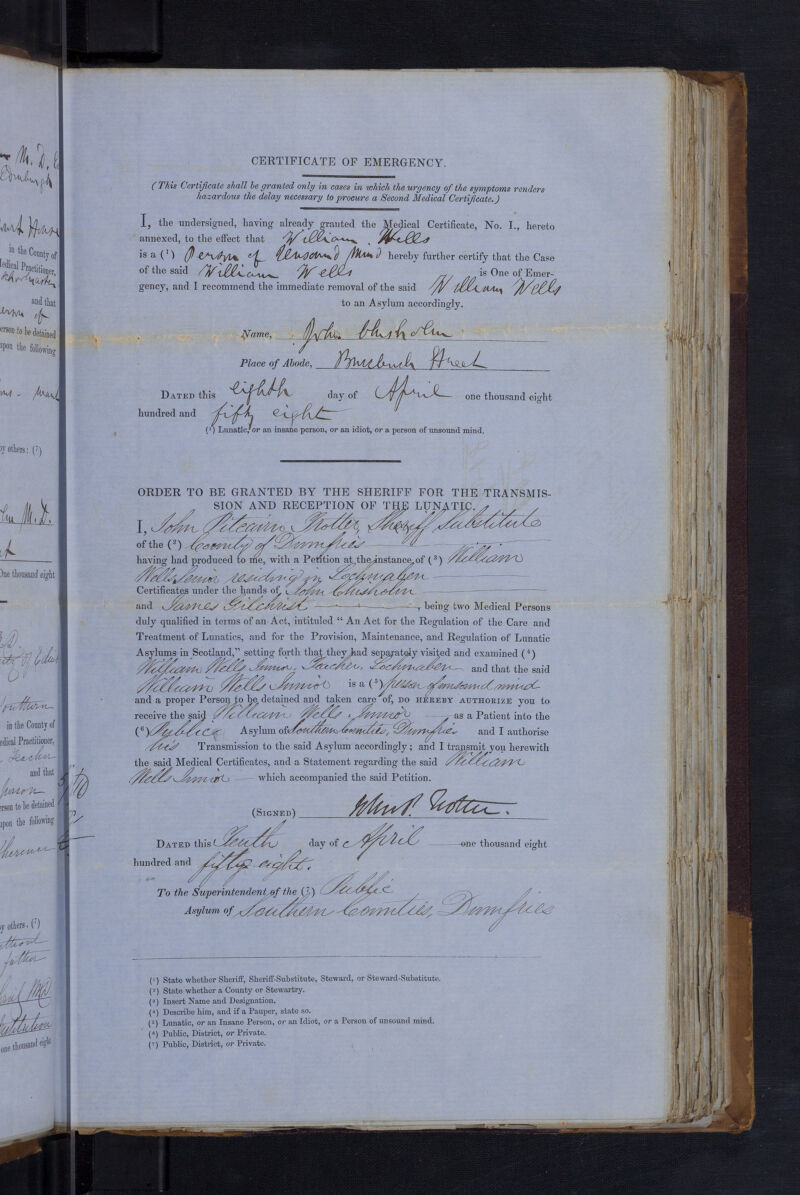 M. D.
Edinburgh
in the County of
Medical Practitioner,
and that
person of
person to be detained
upon the following
by others: (7)
M.D.
One thousand eight
Southern
in the County of
edical Practitioner,
Teacher
and that
person
erson to be detained
upon the following
by others. (7)
father
Institution
one thousand eight
CERTIFICATE OF EMERGENCY.
(This Certificate shall be granted only in cases in which the urgency of the symptoms renders
hazardous the delay necessary to procure a Second Medical Certificate.)
I, the undersigned, having already granted the Medical Certificate, No. I., hereto
annexed, to the effect that William Wells
is a (1) Person of Unsound Mind hereby further certify that the Case
of the said William Wells is One of Emer-
gency, and I recommend the immediate removal of the said William Wells
to an Asylum accordingly.
Name, John Chisholm
Place of Abode, Street
DATED this eighth day of April one thousand eight
hundred and fifty eight
(1) Lunatic, or an insane person, or an idiot, or a person of unsound mind.
ORDER TO BE GRANTED BY THE SHERIFF FOR THE TRANSMIS-
SION AND RECEPTION OF THE LUNATIC.
I, John Pitcairn Trotter, Sheriff Substitute
of the (2) County of Dumfries
having had produced to me, with a Petition at the instance of (3) William
Wells Senior residing in Lochmaben
Certificates under the hands of John Chisholm
and James Gilchrist, being two Medical Persons
duly qualified in terms of an Act, intituled “ An Act for the Regulation of the Care and
Treatment of Lunatics, and for the Provision, Maintenance, and Regulation of Lunatic
Asylums in Scotland,” setting forth that they had separately visited and examined (4)
William Wells Junior, Teacher, Lochmaben and that the said
William Wells Junior is a (5) person of unsound mind
and a proper Person to be detained and taken care of, DO HEREBY AUTHORIZE you to
receive the said William Wells, Junior as a Patient into the
(6) Public Asylum of Southern Counties, Dumfries and I authorise
his Transmission to the said Asylum accordingly; and I transmit you herewith
the said Medical Certificates, and a Statement regarding the said William
Wells Junior which accompanied the said Petition.
(SIGNED) John P. Trotter.
DATED this Tenth day of April one thousand eight
hundred and fifty eight.
To the Superintendent of the (7) Public
Asylum of Southern Counties, Dumfries
(1) State whether Sheriff, Sheriff-Substitute, Steward, or Steward-Substitute.
(2) State whether a County or Stewartry.
(3) Insert Name and Designation.
(4) Describe him, and if a Pauper, state so.
(5) Lunatic, or an Insane Person, or an Idiot, or a Person of unsound mind.
(6) Public, District, or Private.
(7) Public, District, or Private.